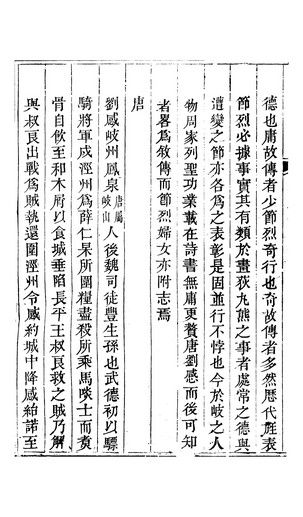 德也庸故傳者少節烈奇行也奇故傳者多然歷代旌表
節烈必據事實其有類於畫荻九熊之事者處常之德與
遭變之節亦各爲之表彰是固並行不悖也今於岐之人
物周家列聖功業載在詩書無庸更贅唐劉感而後可知
者畧爲敘傳而節烈婦女亦附志焉
唐
劉感岐州鳳泉唐屬岐山人後魏司徒豐生孫也武德初以驃
騎將軍戍涇州爲薛仁杲所圍糧盡殺所乘馬啖士而煑
骨自飲至和木屑以食城垂陷長平王叔良救之賊乃解
與叔良出戰爲賊執還圍涇州令感約城中降感紿諾至